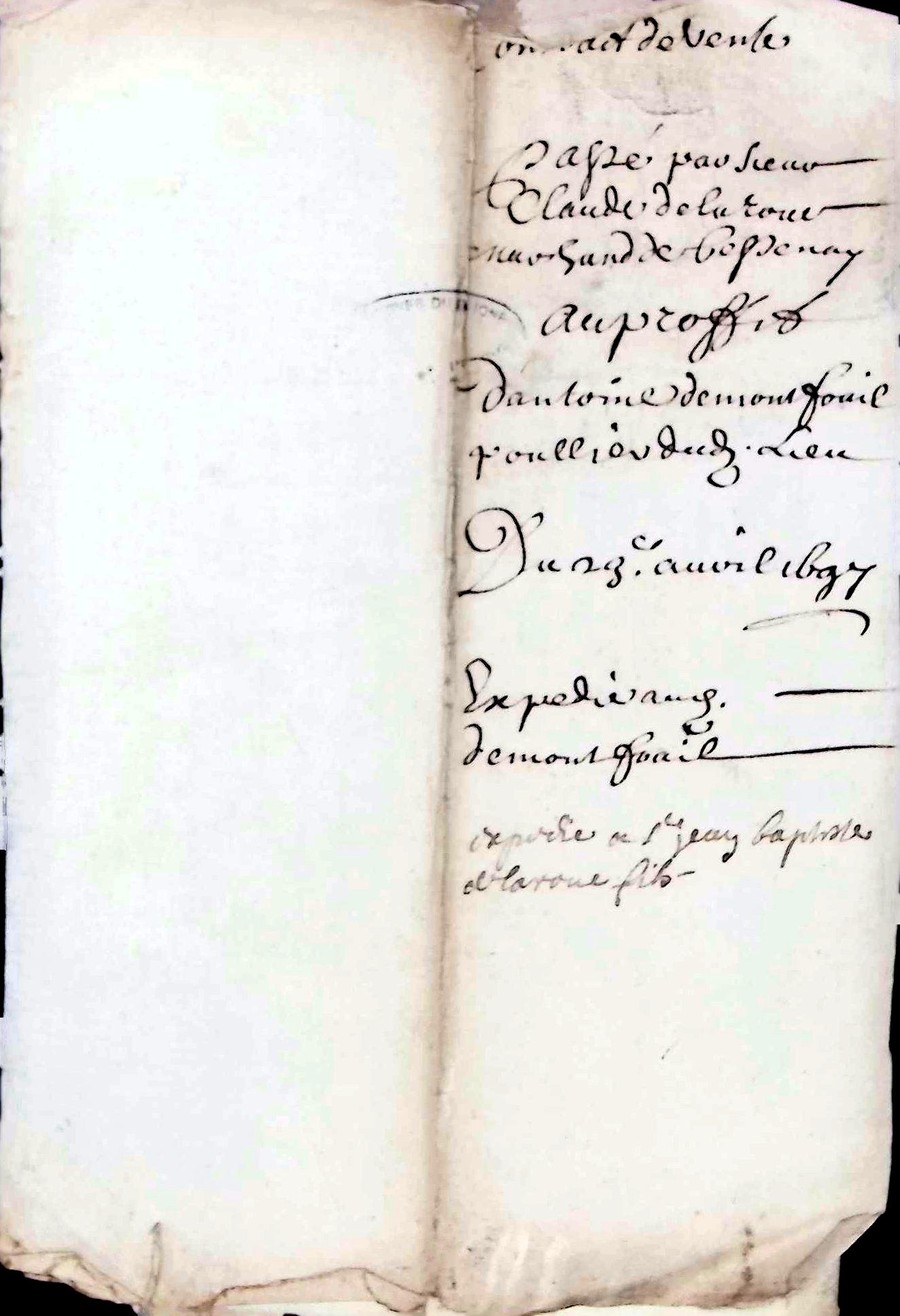 Contract de Vente
Passé par sieur
Claude de la roue
marchand de bessenay
Au proffit
dantoine demontfouil
poullier dud. Lieu
Du 29e. auril 1697
Expedie aud.
demontfouil
expedie a sr jean baptiste
delaroue fils